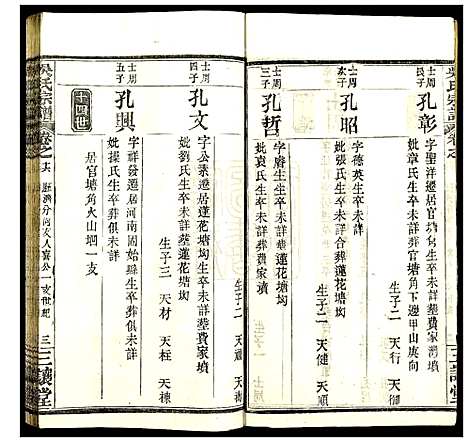 吳氏宗譜
卷之
士周長子
孔彰
字聖洋遷居官塘角生卒未詳葬費家灣墳
妣章氏生卒未詳葬官塘角下邊甲山庚向
生子二 天行 天御
士周次子
孔昭
字德英生卒未詳
妣張氏生卒未詳合葬蓮花塘㘭
生子二 天健 天順
士周三子
孔哲
字睿生生卒未詳葬費家墳
妣袁氏生卒未詳葬蓮花塘㘭
生子二 天
士周四子
孔文
字公素遷居蓮花塘㘭生卒未詳葬費家墳
妣劉氏生卒未詳葬蓮花塘㘭
生子三 天材 天柱 天棟
士周五子
孔興
字祥發遷居河南固始縣生卒葬俱未詳
妣操氏生卒葬俱未詳
十四世
居官塘角火山堈一支
吳氏宗譜
卷之
公一支世紀
三
三讓堂